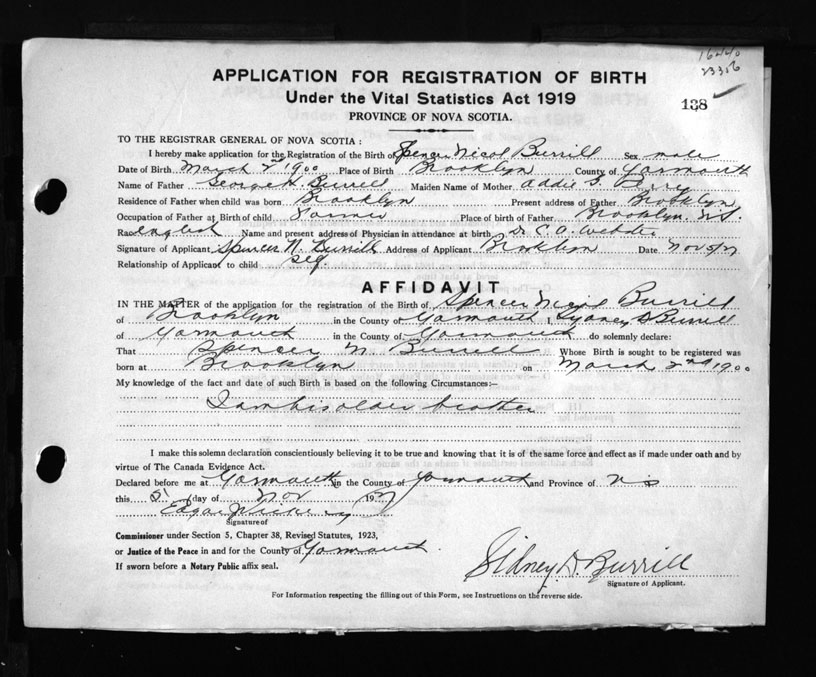 APPLICATION FOR REGISTRATION OF BIRTH
Under the Vital Statistics Act 1919
PROVINCE OF NOVA SCOTIA.
138
TO THE REGISTRAR GENERAL OF NOVA SCOTIA:
I hereby make application for the Registration of the Birth of Spencer Nicol Burrill Sex male
Date of Birth March 2nd 1900 Place of Birth Brooklyn County of Yarmouth
Name of Father George H. Burrill Maiden Name of Mother Addie S.
Residence of Father when child was born Brooklyn Present address of Father Brooklyn
Occupation of Father at Birth of child Farmer Place of birth of Father Brooklyn, N.S.
Race English Name and present address of Physician in attendance at birth Dr C. A. Webster
Signature of Applicant Spencer N. Burrill Address of Applicant Brooklyn Date Nov 5/
Relationship of Applicant to child Self
AFFIDAVIT
IN THE MATTER of the application for the registration of the Birth of Spencer Nicol Burrill
of Brooklyn in the County of Yarmouth I Sydney D Burrill
of Yarmouth in the County of Yarmouth do solemnly declare:
That Spencer N. Burrill Whose Birth is sought to be registered was
born at Brooklyn on March 2nd 1900
My knowledge of the fact and date of such Birth is based on the following Circumstances:—
I am his older brother
I make this solemn declaration conscientiously believing it to be true and knowing that it is of the same force and effect as if made under oath and by
virtue of The Canada Evidence Act.
Declared before me at Yarmouth in the County of Yarmouth and Province of N S
this 5 day of Nov 19
Edgar
Signature of
Commissioner under Section 5, Chapter 38, Revised Statutes, 1923,
or Justice of the Peace in and for the County of Yarmouth.
If sworn before a Notary Public affix seal.
Sidney D. Burrill
Signature of Applicant.
For Information respecting the filling out of this Form, see Instructions on the reverse side.